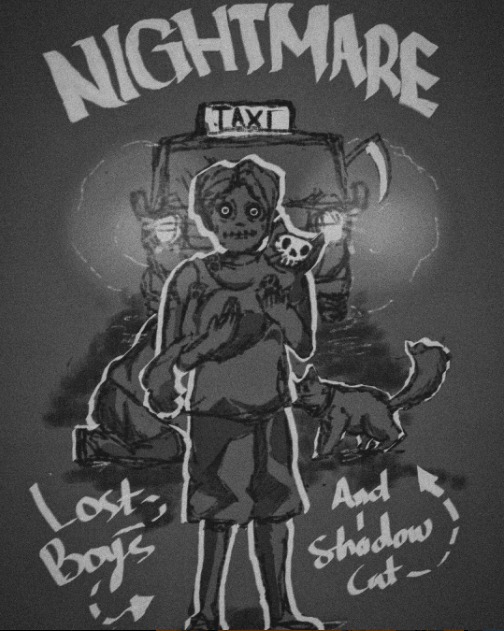 NIGHTMARE
TAXI
Lost
Boys
And
Shadow
Cat